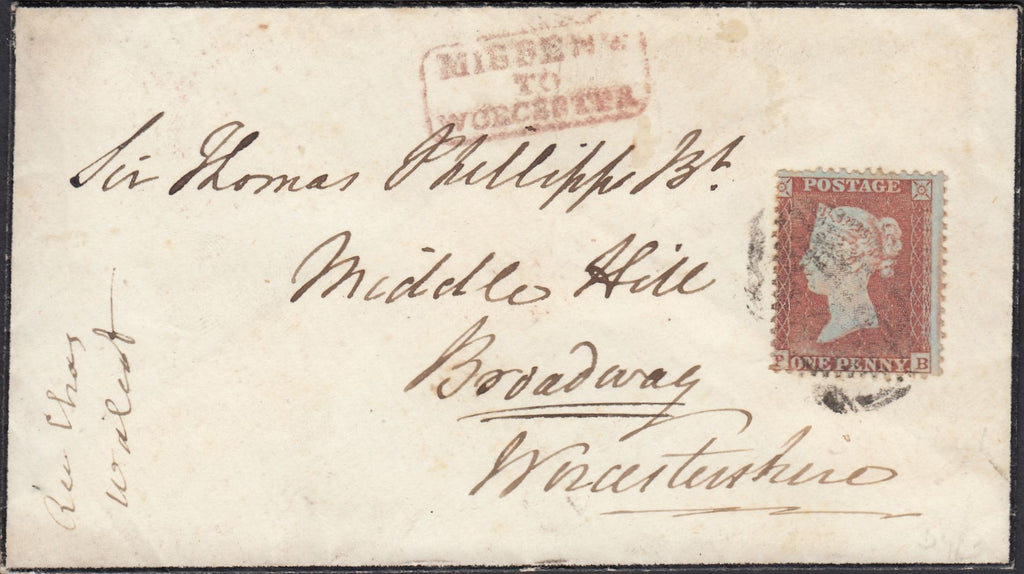 MISSENT
TO
WORCESTER
Sir Thomas Phillipps Bt.
Middle Hill
Broadway
Worcestershire
POSTAGE
P ONE PENNY B
Rev Chas